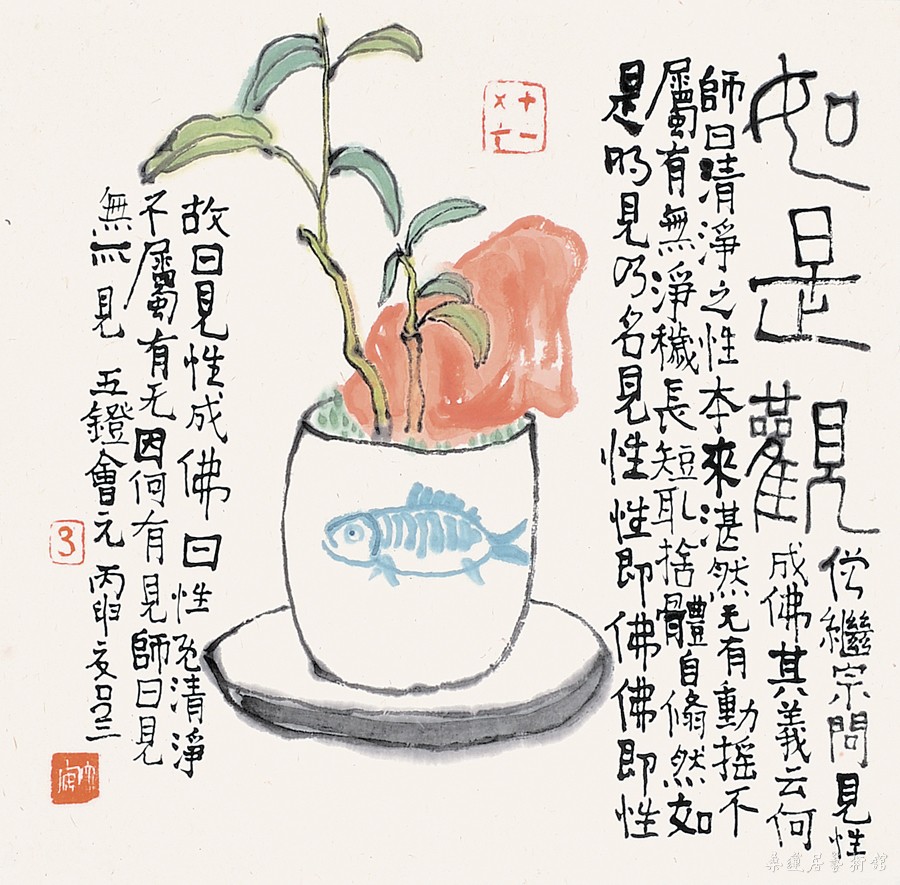 如是觀
僧繼宗問見性
成佛其義云何
師曰清淨之性本來湛然无有動搖不
屬有無淨穢長短取捨體自翛然如
是明見乃名見性性即佛佛即性
故曰見性成佛曰性既清淨
不屬有无因何有見師曰見
無所見 五鐙會元 丙申
3
桑蓮居藝術館